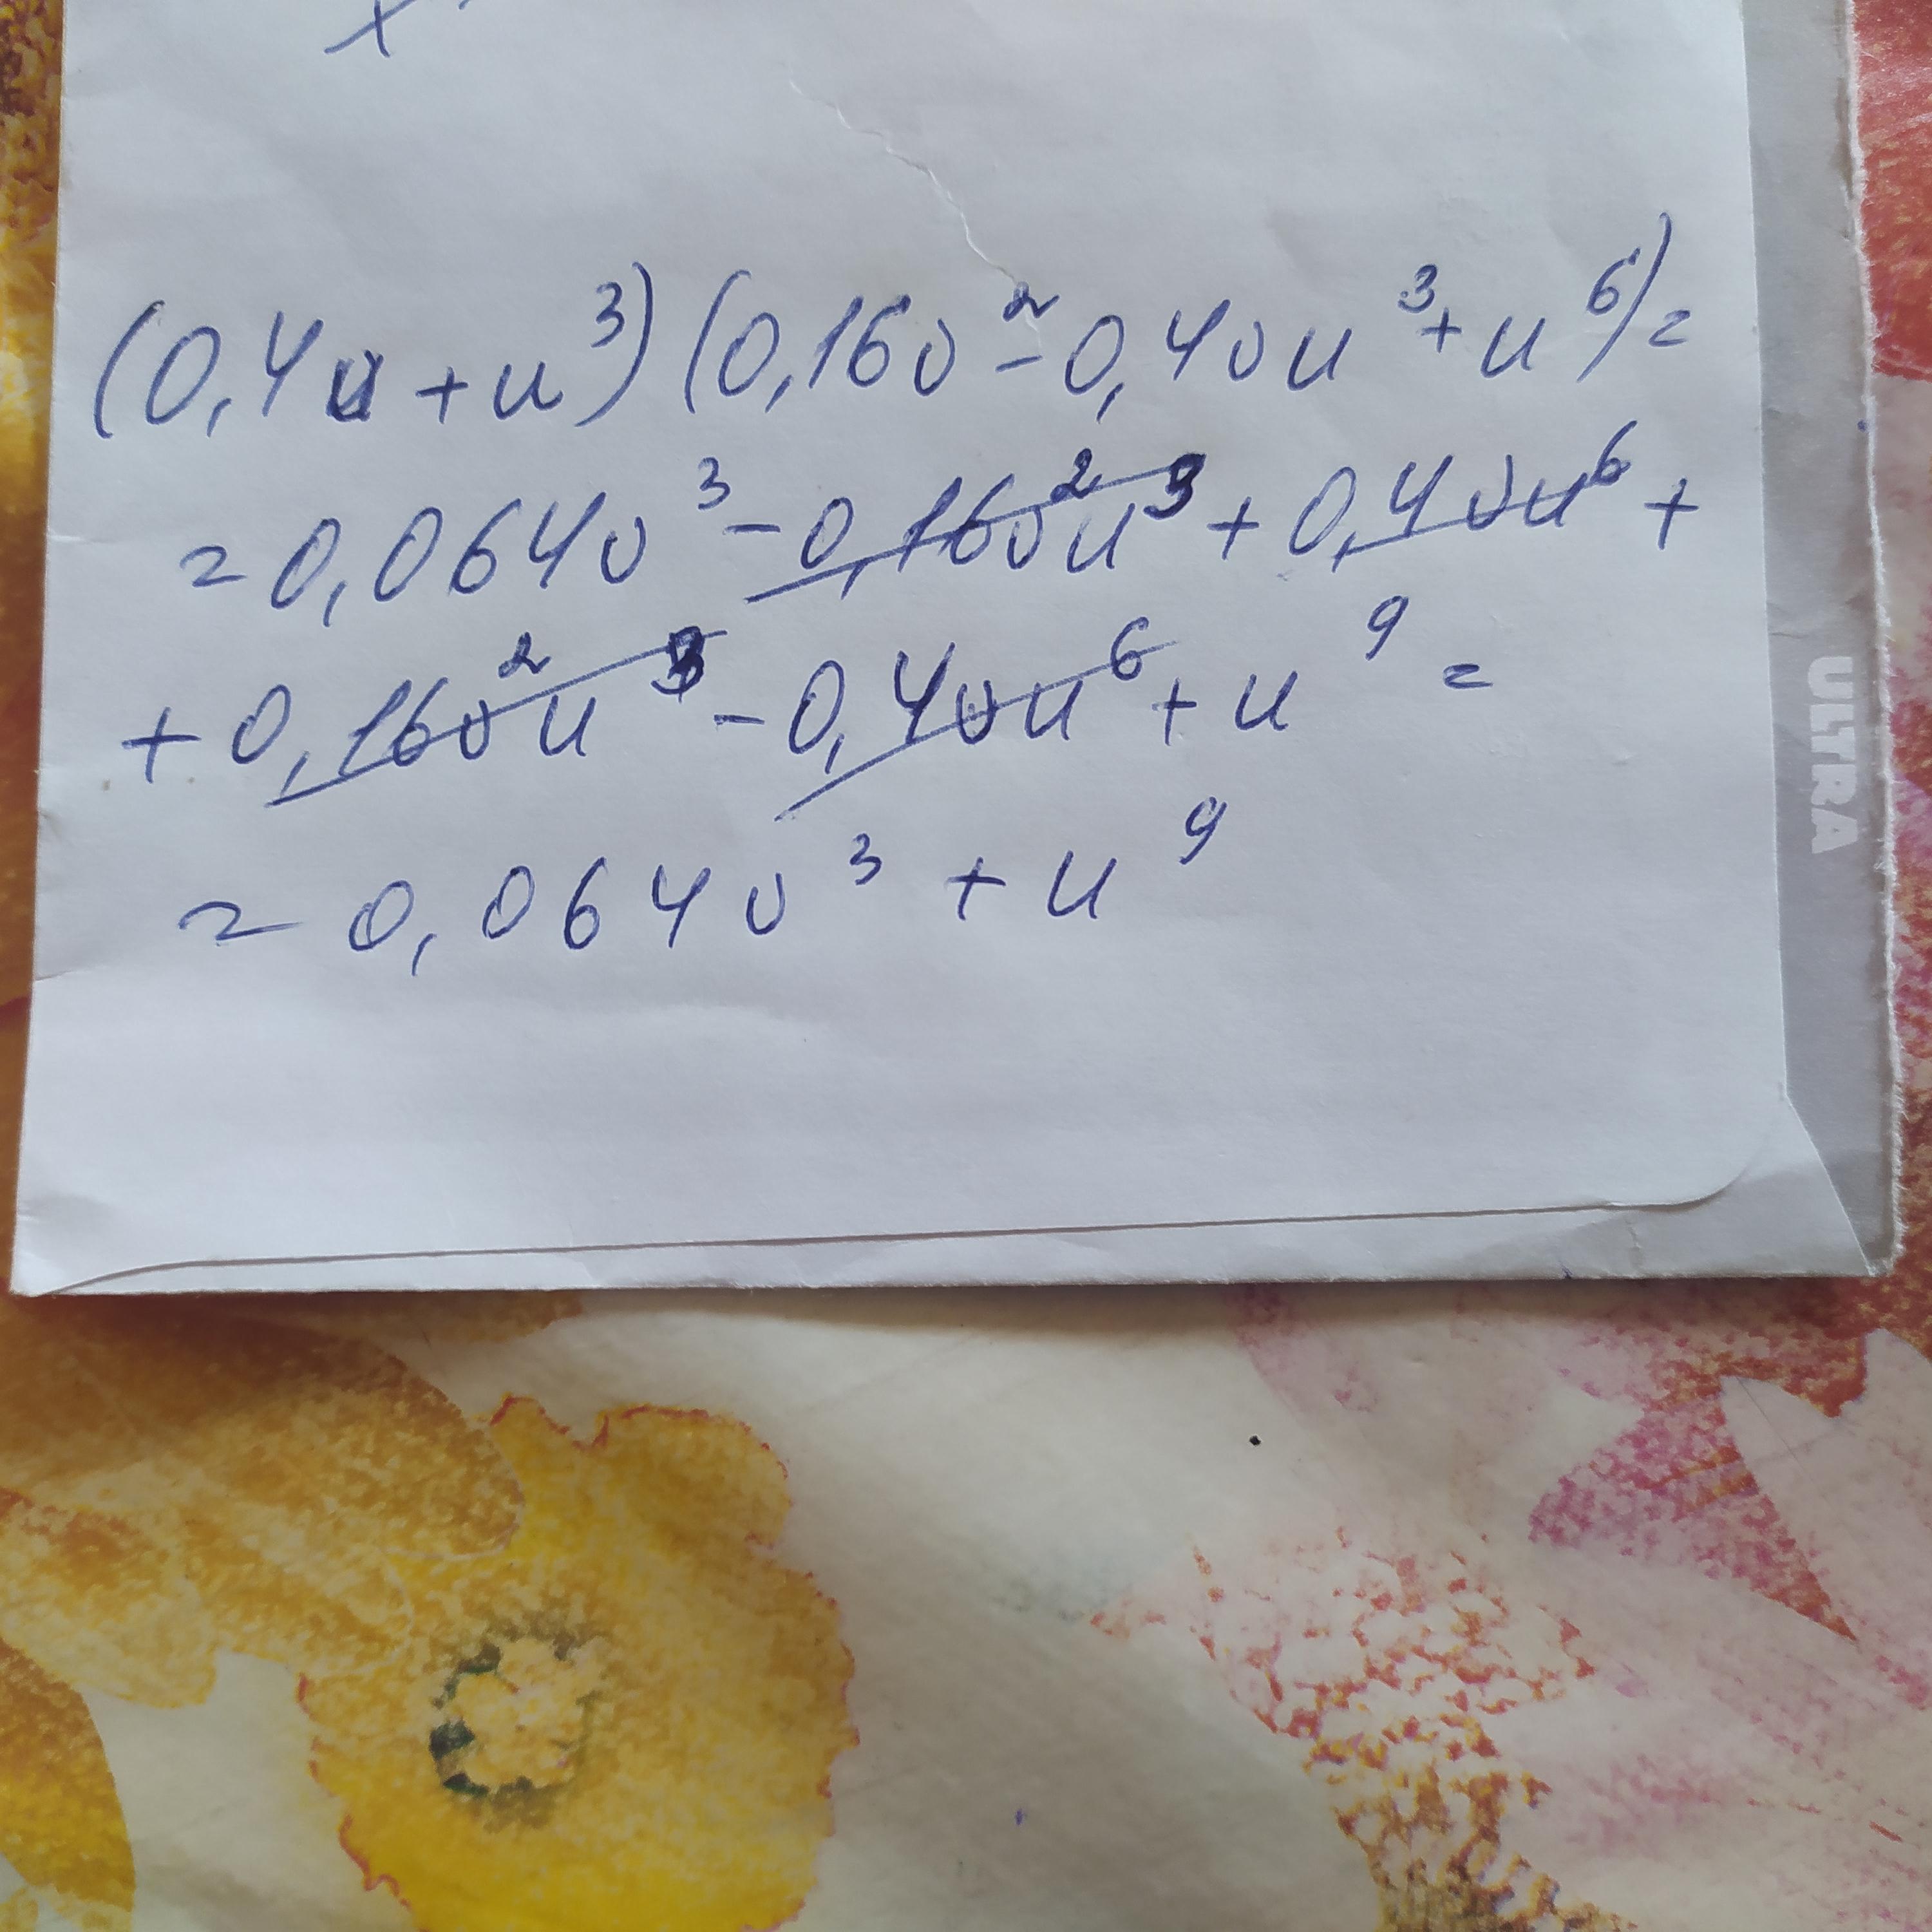 x
(0,4υ + u³)(0,16υ² - 0,4υu³ + u⁶) =
= 0,064υ³ - 0,16υ²u³ + 0,4υu⁶ +
+ 0,16υ²u³ - 0,4υu⁶ + u⁹ =
= 0,064υ³ + u⁹
ULTRA